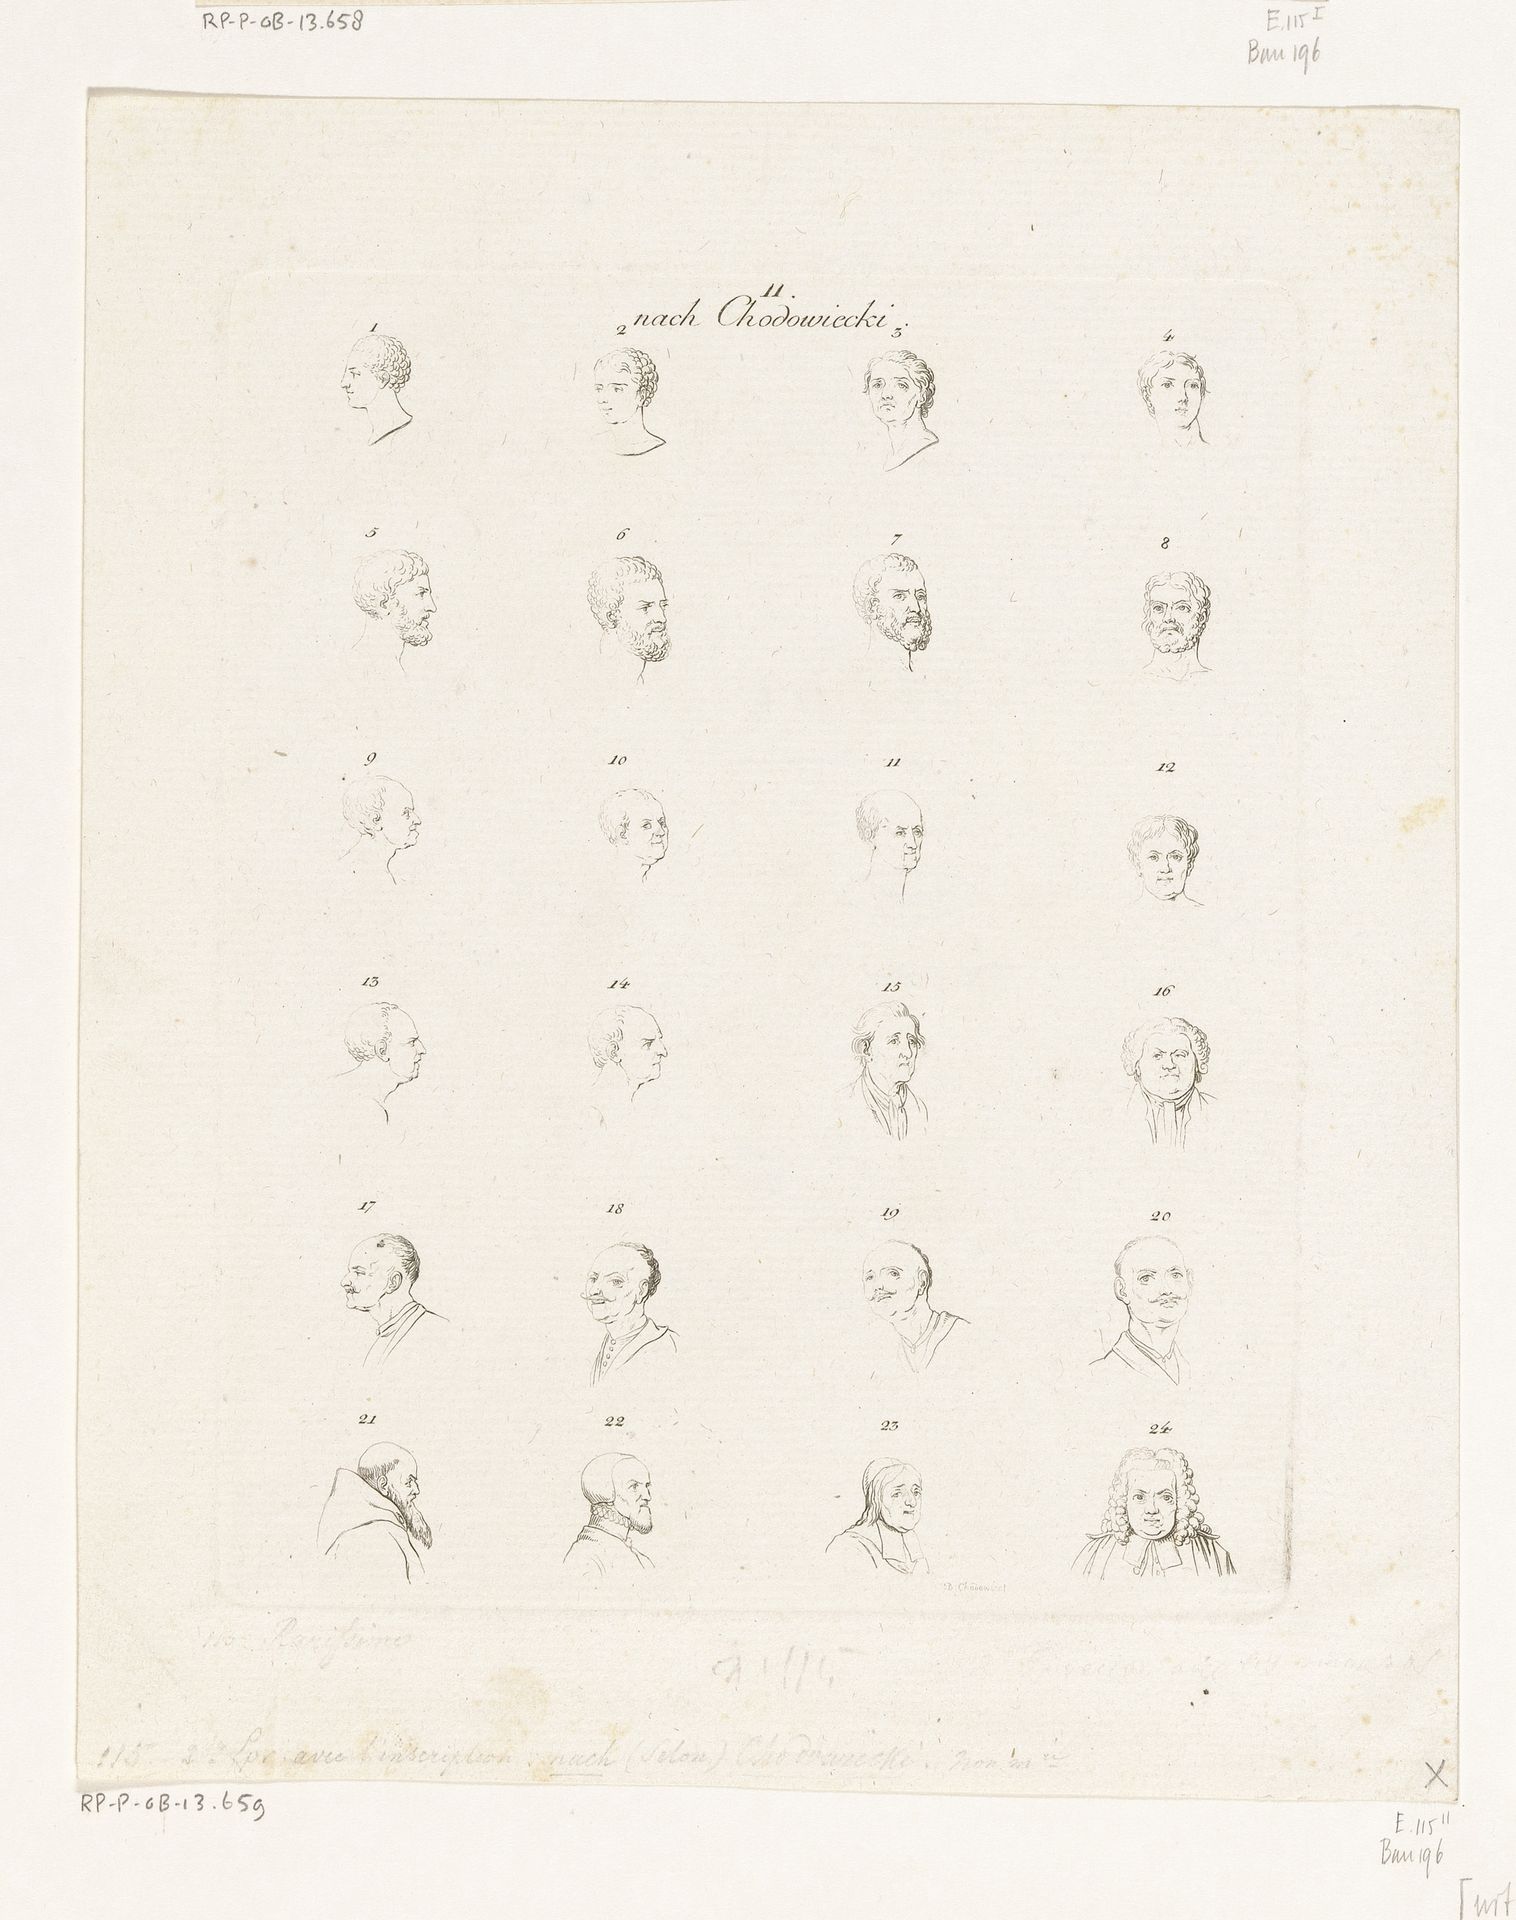 RP-P-OB-13.658
E.115 I
Bau 196
11.
nach Chodowiecki.
1 2 3 4
5 6 7 8
9 10 11 12
13 14 15 16
17 18 19 20
21 22 23 24
D. Chodowiecki
Rarissime
115 avec l'inscription: nach (Selon) Chodowiecki.
X
RP-P-OB-13.659
E.115 II
Bau 196